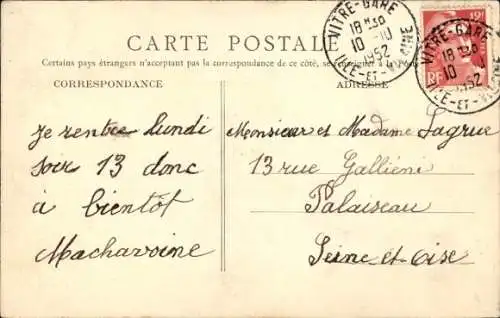 CARTE POSTALE
Certains pays étrangers n'acceptant pas la correspondance de ce côté, se renseigner à la
CORRESPONDANCE
ADRESSE
Je rentre lundi
soir 13 donc
à bientôt
Machavoine
Monsieur et Madame Lagrue
13 rue Gallieni
Palaiseau
Seine-et-Oise
VITRÉ-GARE
18 H30
10 -10
1952
ILLE-ET-VILAINE
RF
VITRÉ-GARE
18 H30
10
1952
ILLE-ET-VILAINE